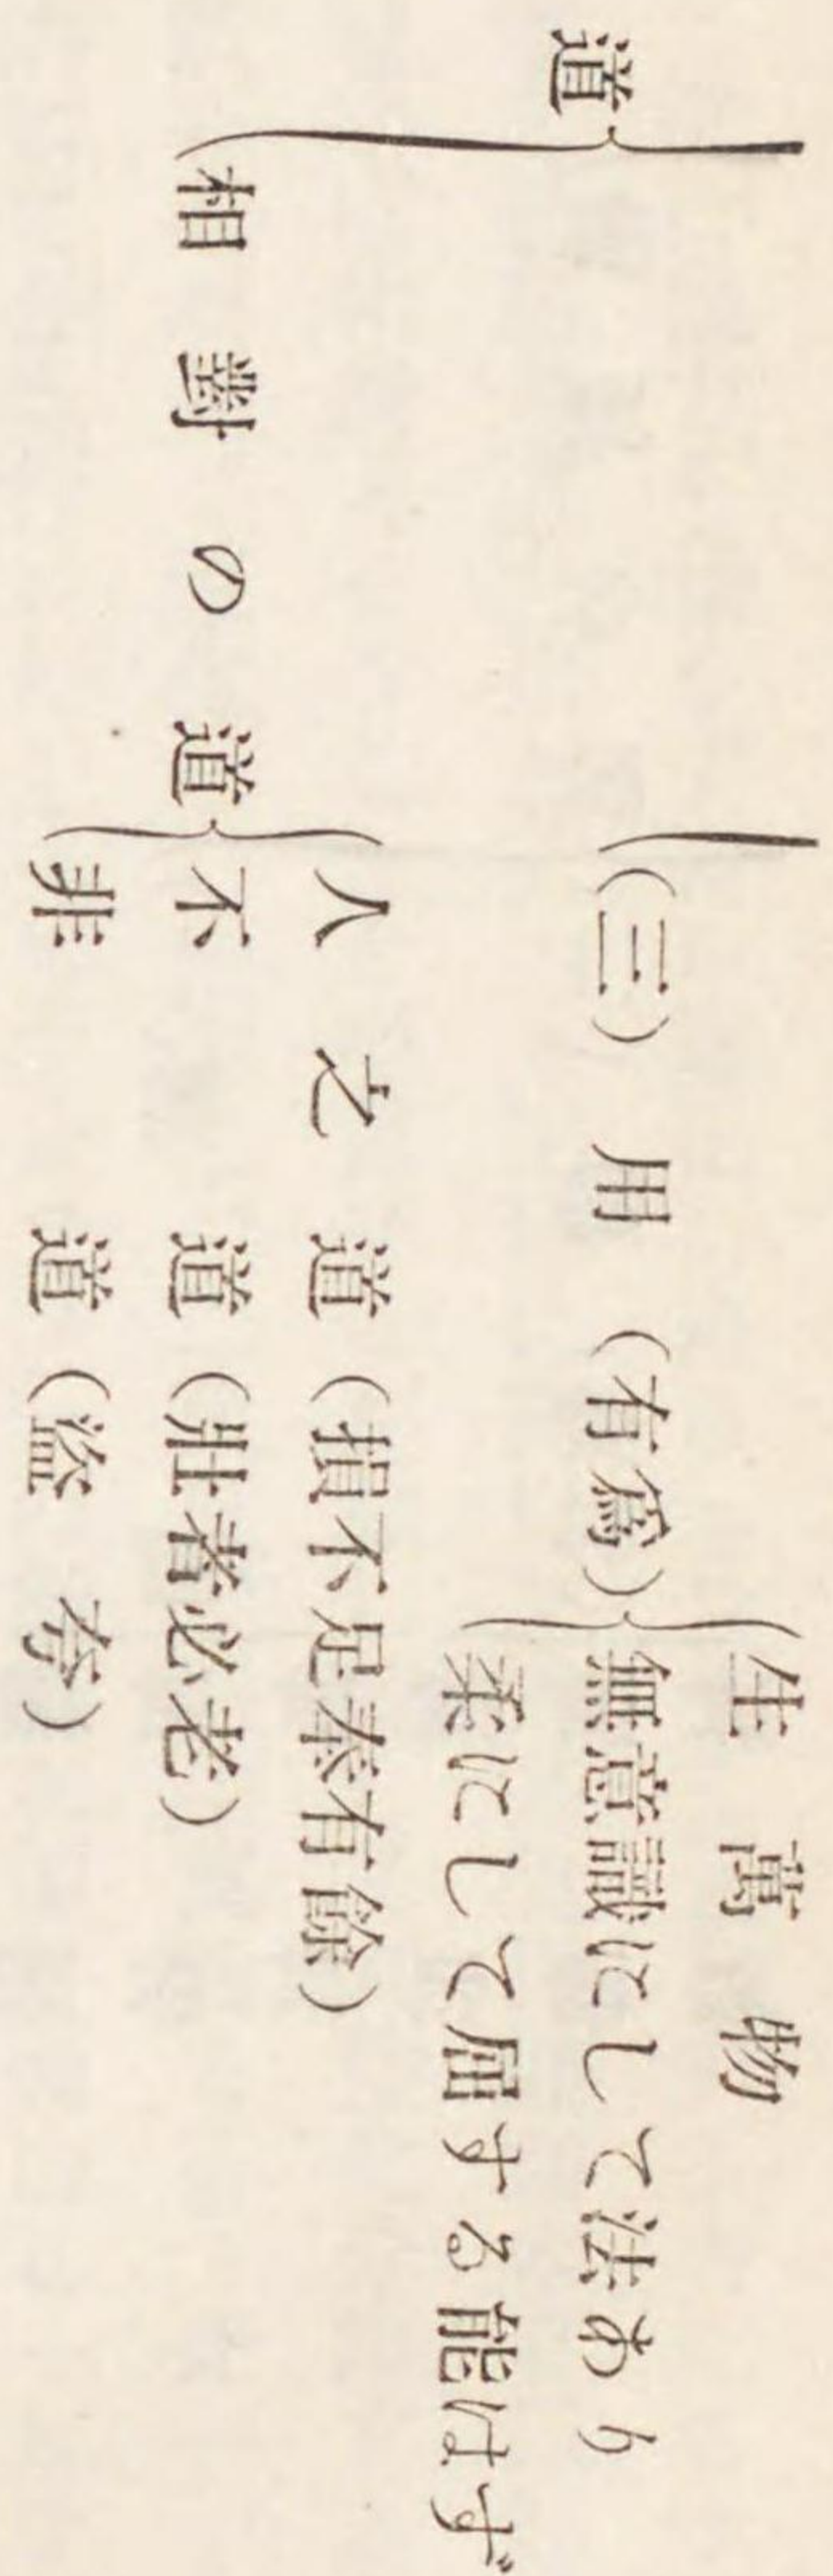 道
(三)用(有爲)
生萬物
無意識にして法あり
柔にして屈する能はず
相對の道
人之道(損不足奉有餘)
不道(壯者必老)
非道(盜夸)